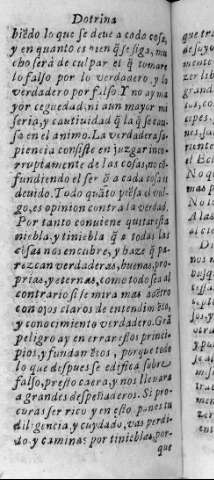 Dotrina
biẽdo lo que se deue a cada cosa,
y en quanto es bien q̃ se siga, mu
cho será de culpar el q̃ tomare
lo falso por lo verdadero, y lo
verdadero por falso. Y no ay ma
yor ceguedad, ni aun mayor mi
seria, y cautiuidad q̃ la q̃ se cau
sa en el animo. La verdadera sa
piencia consiste en juzgar inco
rruptamente de las cosas, no cõ
fundiendo el ser q̃ a cada cosa es
deuido. Todo quãto piẽsa el vul
go, es opinion contra la verdad.
Por tanto conuiene quitar esta
niebla, y tiniebla q̃ a todas las
cosas nos encubre, y haze q̃ pa
rezcan verdaderas, buenas, pro
prias, y eternas, como todo sea al
contrario si se mira mas adẽtro
con ojos claros de entendimiẽto,
y conocimiento verdadero. Grã
peligro ay en errar estos princi
pios, y fundamẽtos, porque todo
lo que despues se edifica sobre
falso, presto caera, y nos lleuara
a grandes despeñaderos. Si pro
curas ser rico y en esto pones tu
diligencia, y cuydado, vas perdi
do, y caminas por tinieblas, por-
que